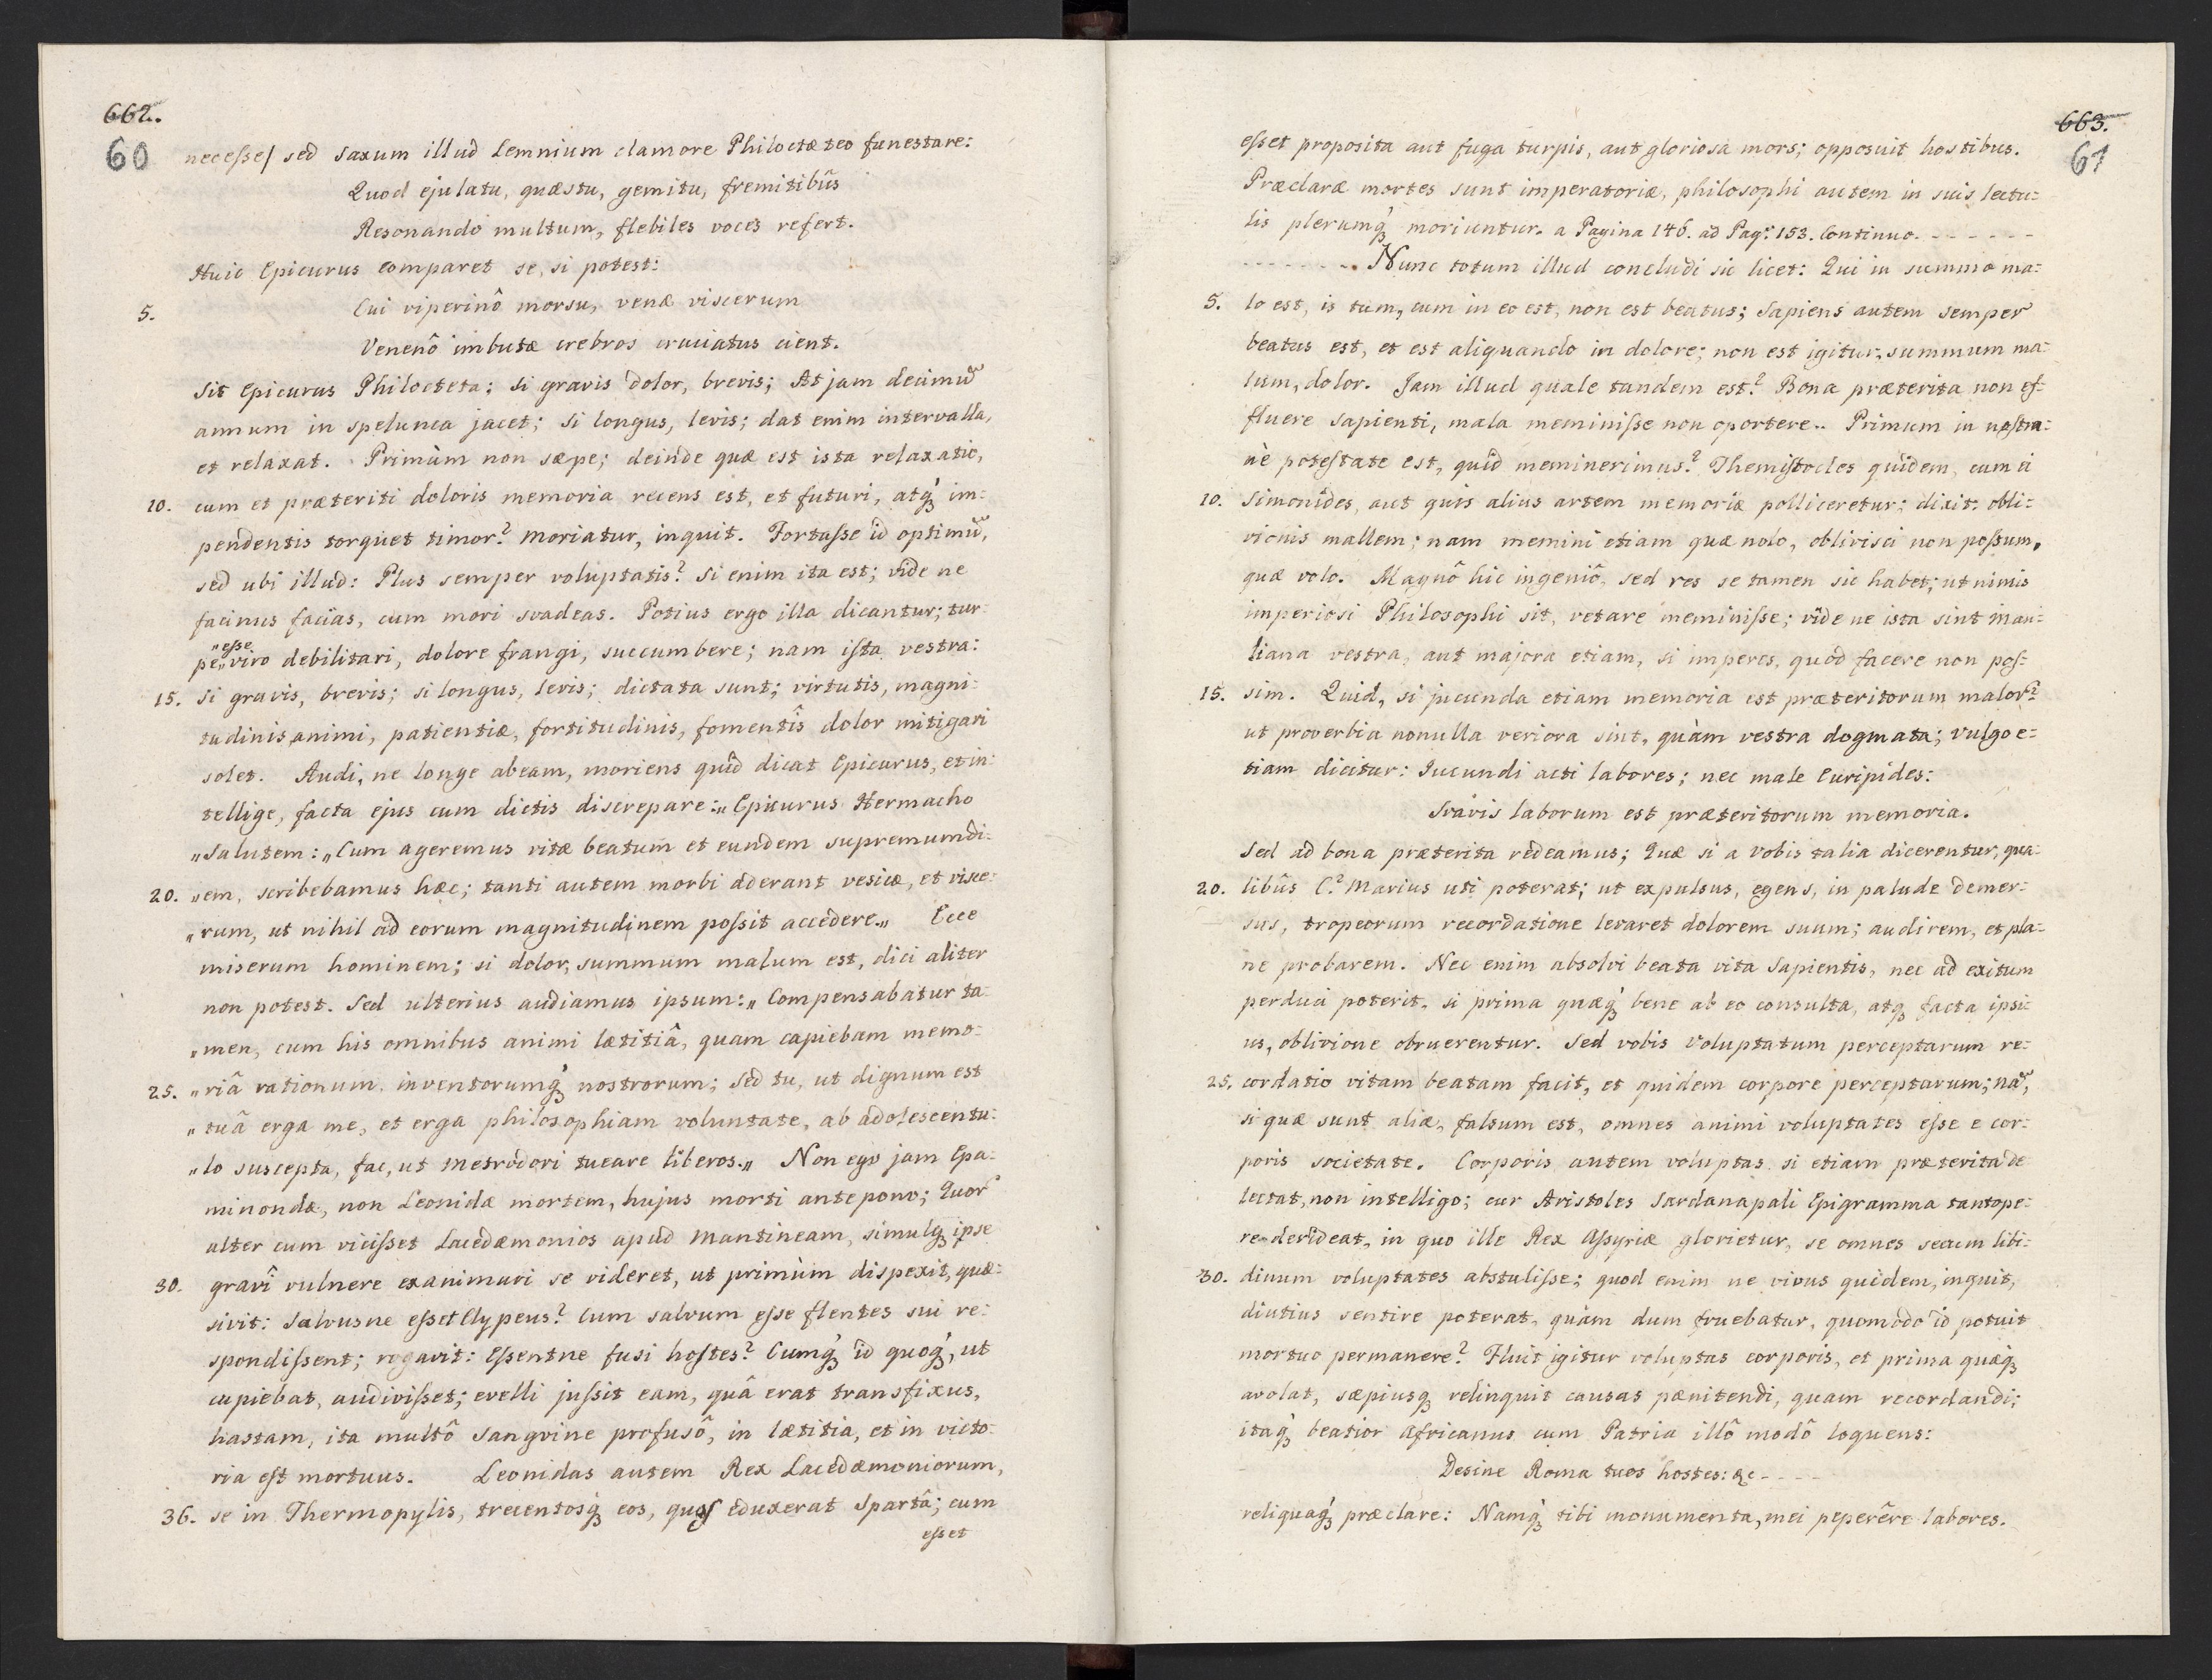 662.
60
necesse/ sed saxum illud Lemnium clamore Philoctæteo funestare:
Quod ejulatu, quæstu, gemitu, fremitibûs
Resonando multum, flebiles voces refert.
Huic Epicurus comparet se, si potest:
5. Cui viperinô morsu, venæ viscerum
Venenô imbutæ crebros cruciatus cient.
Sit Epicurus Philocteta: si gravis dolor, brevis; At jam decimũ
annum in spelunca jacet; si longus, levis; dat enim intervalla,
et relaxat. Primùm non sæpe; deinde quæ est ista relaxatio,
10. cum et præteriti doloris memoria recens est, et futuri, atq́ꝫ im:
pendentis torquet timor? moriatur, inquit. Fortaſse id optimũ,
sed ubi illud: Plus semper voluptatis? Si enim ita est; vide ne
facinus facias, cum mori svadeas. Potius ergo illa dicantur; tur:
„esse
pe„viro debilitari, dolore frangi, succumbere; nam iſta vestra:
15. Si gravis, brevis; si longus, levis; dictata sunt; virtutis, magni:
tudinis animi, patientiæ, fortitudinis, fomentîs dolor mitigari
solet. Audi, ne longe abeam, moriens quid dicat Epicurus, et in:
tellige, facta ejus cum dictis discrepare:„ Epicurus Hermacho
„Salutem:„ Cum ageremus vitæ beatum et eundem supremum di:
20. „em, scribebamus hæc; tanti autem morbi aderant vesicæ, et visce:
„rum, ut nihil ad eorum magnitudinem poſsit accedere.„ Ecce
miserum hominem; si dolor, summum malum est, dici aliter
non potest. Sed ulterius audiamus ipsum:„ Compensabatur ta:
„men, cum his omnibus animi lætitiâ, quam capiebam memo:
25. „riâ rationum, inventorumq́ꝫ nostrorum; Sed tu, ut dignum est
„tuâ erga me, et erga philosophiam voluntate, ab adolescentu:
„lo suscepta, fac, ut Metrodori tueare liberos.„ Non ego jam Epa:
minondæ, non Leonidæ mortem, hujus morti antepono; Quor̃
alter cum viciſset Lacedæmonios apud Mantineam, simulqꝫ ipse
30. gravî vulnere exanimari se videret, ut primùm dispexit, quæ:
sivit: Salvusne eſset Clypeus? Cum salvum eſse flentes sui re:
spondiſsent; rogavit: Eſsentne fusi hoſtes? Cumq́ꝫ id quoq́ꝫ, ut
cupiebat, audiviſset; evelli juſsit eam, quâ erat transfixus,
hastam, ita multô sangvine profusô, in lætitia, et in victo:
ria eſt mortuus. Leonidas autem Rex Lacedæmoniorum,
36. se in Thermopylis, trecentosq́ꝫ eos, quos eduxerat Spartâ; cum
eſset
663.
61
eſset proposita aut fuga turpis, aut gloriosa mors; opposuit hostibus.
Præclaræ mortes sunt imperatoriæ, philosophi autem in suis lectu:
lis plerumq́ꝫ moriuntur. a Pagina 146. ad Pag: 153. Continuo. - - - - - -
- - - - - - - . Nunc totum illud concludi sic licet: Qui in summo ma:
5. lo est, is tum, cum in eo est, non est beatus; Sapiens autem semper
beatus est, et est aliquando in dolore; non est igitur, summum ma:
lum, dolor. Jam illud quale tandem est? Bona præterita non ef:
fluere sapienti, mala meminiſse non oportere.. Primum in noſtra:
nè poteſtate est, quid meminerimus? Themiſtocles quidem, cum ei
10. Simonides, aut quis alius artem memoriæ polliceretur; dixit: obli:
vionis mallem; nam memini etiam quæ nolo, oblivisci non poſsum,
quæ volo. Magnô hic ingeniô, sed res se tamen sic habet; ut nimis
imperiosi Philosophi sit, vetare meminiſse; vide ne ista sint Man:
liana vestra, aut majora etiam, si imperes, quod facere non poſ:
15. sim. Quid, si jucunda etiam memoria est præteritorum malor̃?
ut proverbia nonulla veriora sint, quàm vestra dogmata; vulgo e:
tiam dicitur: Jucundi acti labores; nec male Euripides:
Svavis laborum est præteritorum memoria.
Sed ad bona præterita redeamus; Quæ si a vobis talia dicerentur, qua:
20. libûs C: Marius uti poterat; ut expulsus, egens, in palude demer:
sus, tropeorum recordatione levaret dolorem suum; audirem, et pla:
ne probarem. Nec enim absolvi beata vita Sapientis, nec ad exitum
perduci poterit, si prima quæq́ꝫ bene ab eo consulta, atqꝫ facta ipsi:
us, oblivione obruerentur. Sed vobis voluptatum perceptarum re:
25. cordatio vitam beatam facit, et quidem corpore perceptarum; nã,
si quæ sunt aliæ, falsum est, omnes animi voluptates eſse e cor:
poris societate. Corporis autem voluptas si etiam præterita de
lectat, non intelligo; cur Aristoles Sardanapali Epigramma tantope:
re derideat, in quo ille Rex Aſsyriæ glorietur, se omnes secum libi:
30. dinum voluptates abstuliſse; quod enim ne vivus quidem, inquit,
diutius sentire poterat, quàm dum fruebatur, quomodo id potuit
mortuo permanere? Fluit igitur voluptas corporis, et prima quæqꝫ
avolat, sæpiusqꝫ relinquit causas pænitendi, quam recordandi;
itaq́ꝫ beatior Africanus cum Patria illô modô loquens:
Desine Roma tuos hostes: &c - - - -
reliquaq́ꝫ præclare: Namq́ꝫ tibi monumenta, mei peperêre labores.